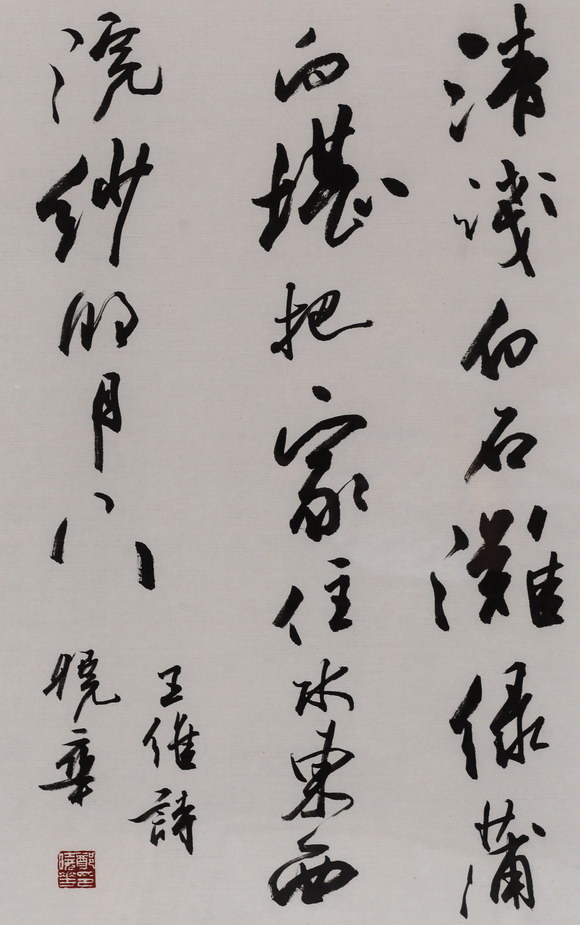 清淺白石灘綠蒲
向堪把家住水東西
浣紗明月下
王維詩
曉華